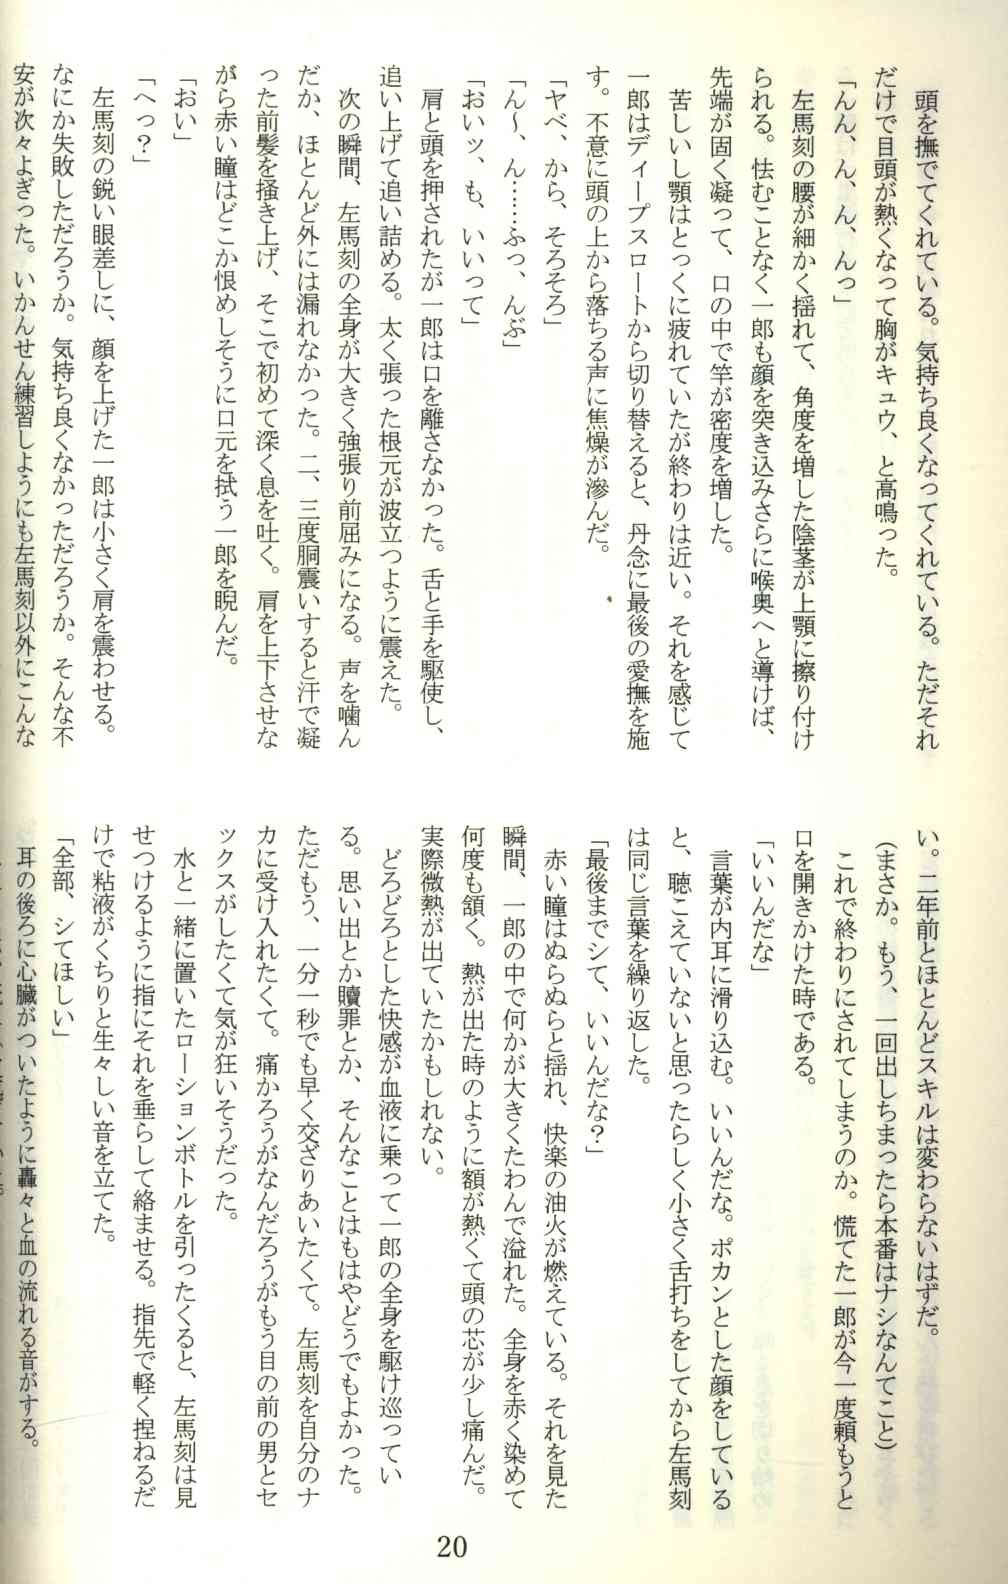 頭を撫でてくれている。気持ち良くなってくれている。ただそれ
だけで目頭が熱くなって胸がキュウ、と高鳴った。
「んん、ん、ん、んっ」
左馬刻の腰が細かく揺れて、角度を増した陰茎が上顎に擦り付け
られる。怯むことなく一郎も顔を突き込みさらに喉奥へと導けば、
先端が固く凝って、口の中で竿が密度を増した。
苦しいし顎はとっくに疲れていたが終わりは近い。それを感じて
一郎はディープスロートから切り替えると、丹念に最後の愛撫を施
す。不意に頭の上から落ちる声に焦燥が滲んだ。
「ヤベ、から、そろそろ」
「ん～、ん……ふっ、んぶ」
「おいッ、も、いいって」
肩と頭を押されたが一郎は口を離さなかった。舌と手を駆使し、
追い上げて追い詰める。太く張った根元が波立つように震えた。
次の瞬間、左馬刻の全身が大きく強張り前屈みになる。声を噛ん
だか、ほとんど外には漏れなかった。二、三度胴震いすると汗で凝
った前髪を掻き上げ、そこで初めて深く息を吐く。肩を上下させな
がら赤い瞳はどこか恨めしそうに口元を拭う一郎を睨んだ。
「おい」
「へっ？」
左馬刻の鋭い眼差しに、顔を上げた一郎は小さく肩を震わせる。
なにか失敗しただろうか。気持ち良くなかっただろうか。そんな不
安が次々よぎった。いかんせん練習しようにも左馬刻以外にこんな
い。二年前とほとんどスキルは変わらないはずだ。
（まさか。もう、一回出しちまったら本番はナシなんてこと）
これで終わりにされてしまうのか。慌てた一郎が今一度頼もうと
口を開きかけた時である。
「いいんだな」
言葉が内耳に滑り込む。いいんだな。ポカンとした顔をしている
と、聴こえていないと思ったらしく小さく舌打ちをしてから左馬刻
は同じ言葉を繰り返した。
「最後までシて、いいんだな？」
赤い瞳はぬらぬらと揺れ、快楽の油火が燃えている。それを見た
瞬間、一郎の中で何かが大きくたわんで溢れた。全身を赤く染めて
何度も頷く。熱が出た時のように額が熱くて頭の芯が少し痛んだ。
実際微熱が出ていたかもしれない。
どろどろとした快感が血液に乗って一郎の全身を駆け巡ってい
る。思い出とか贖罪とか、そんなことはもはやどうでもよかった。
ただもう、一分一秒でも早く交ざりあいたくて。左馬刻を自分のナ
カに受け入れたくて。痛かろうがなんだろうがもう目の前の男とセ
ックスがしたくて気が狂いそうだった。
水と一緒に置いたローションボトルを引ったくると、左馬刻は見
せつけるように指にそれを垂らして絡ませる。指先で軽く捏ねるだ
けで粘液がくちりと生々しい音を立てた。
「全部、シてほしい」
耳の後ろに心臓がついたように轟々と血の流れる音がする。
20